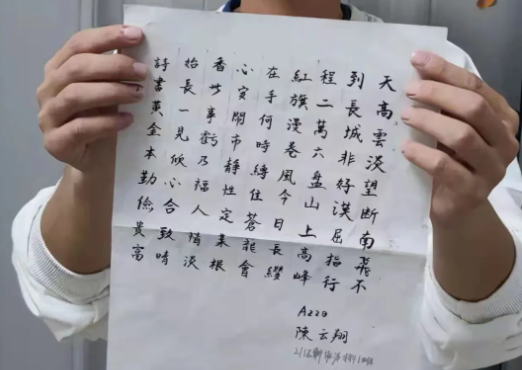 天高雲淡望断南飛不
到長城非好漢屈指行
程二萬六盤山上高峰
紅旗漫卷風今日長纓
在手何時縛住蒼龍會
心安閙市静性定菜根
香世事虧乃福人情淡
始長一見倾心合致時
詩書黄金本勤儉貴高
Azza
陳云翔